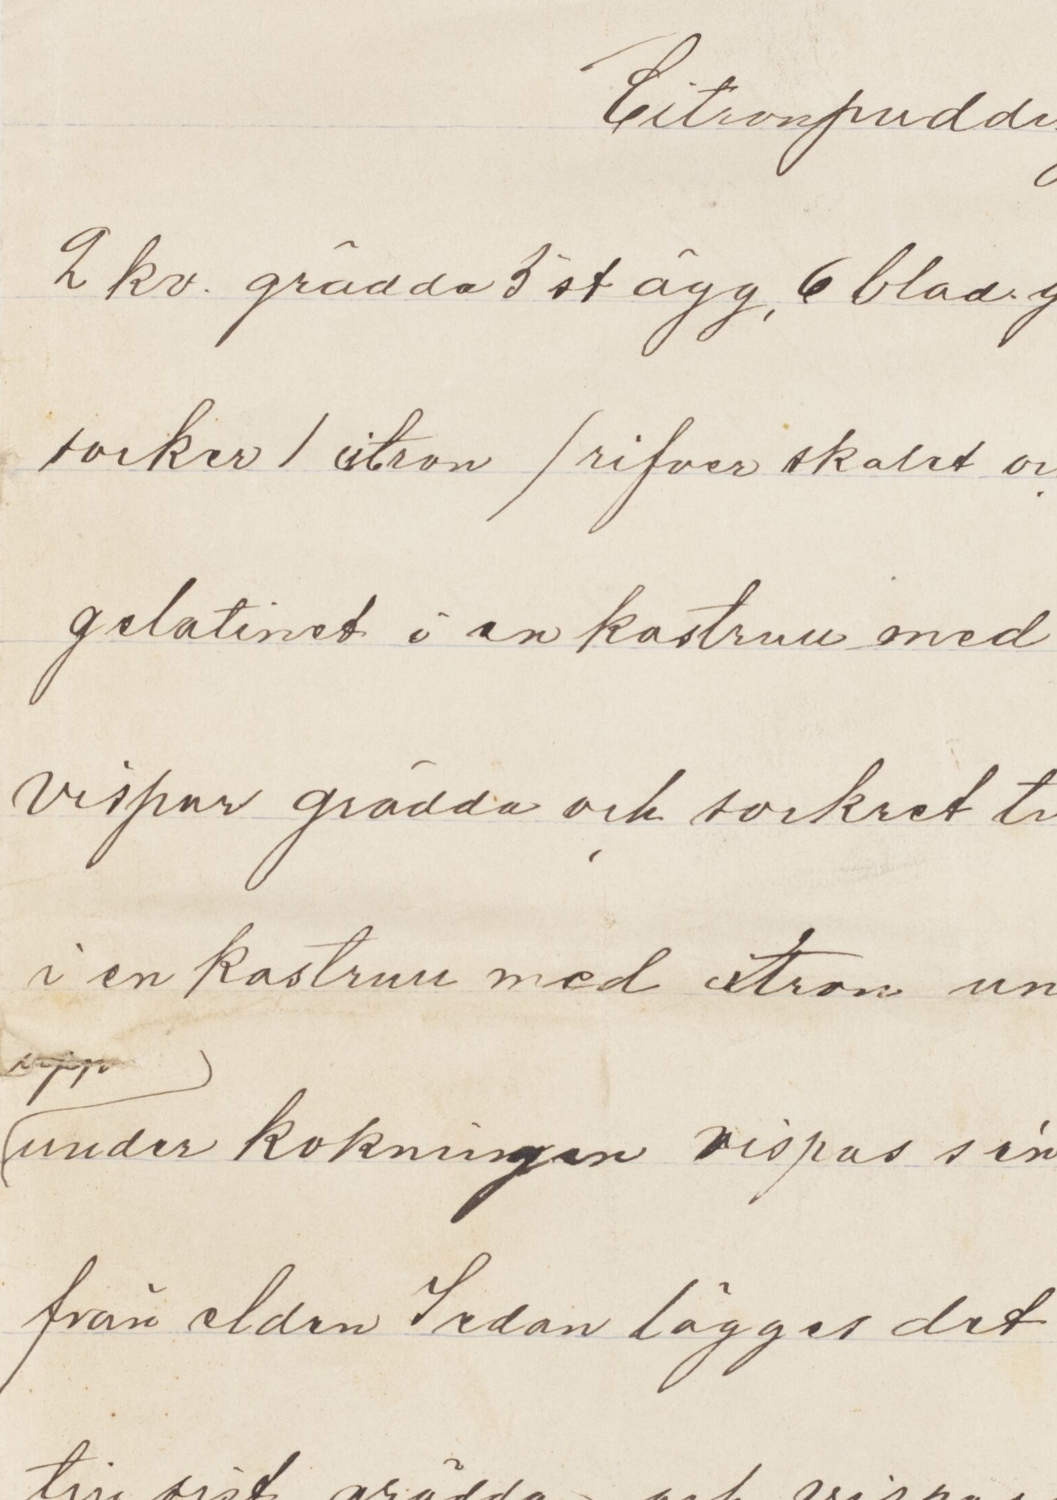 Citronpuddi
2 kv. grädda 5 st ägg, 6 blad. g
socker 1 citron / rifver skalet oc
gelatinet i en kastruu med
vispar grädda och sockret ti
i en kastruu med citron un
upp
under kokningen vispas sen
från elden Sedan lägges det
till sist grädda och vispas